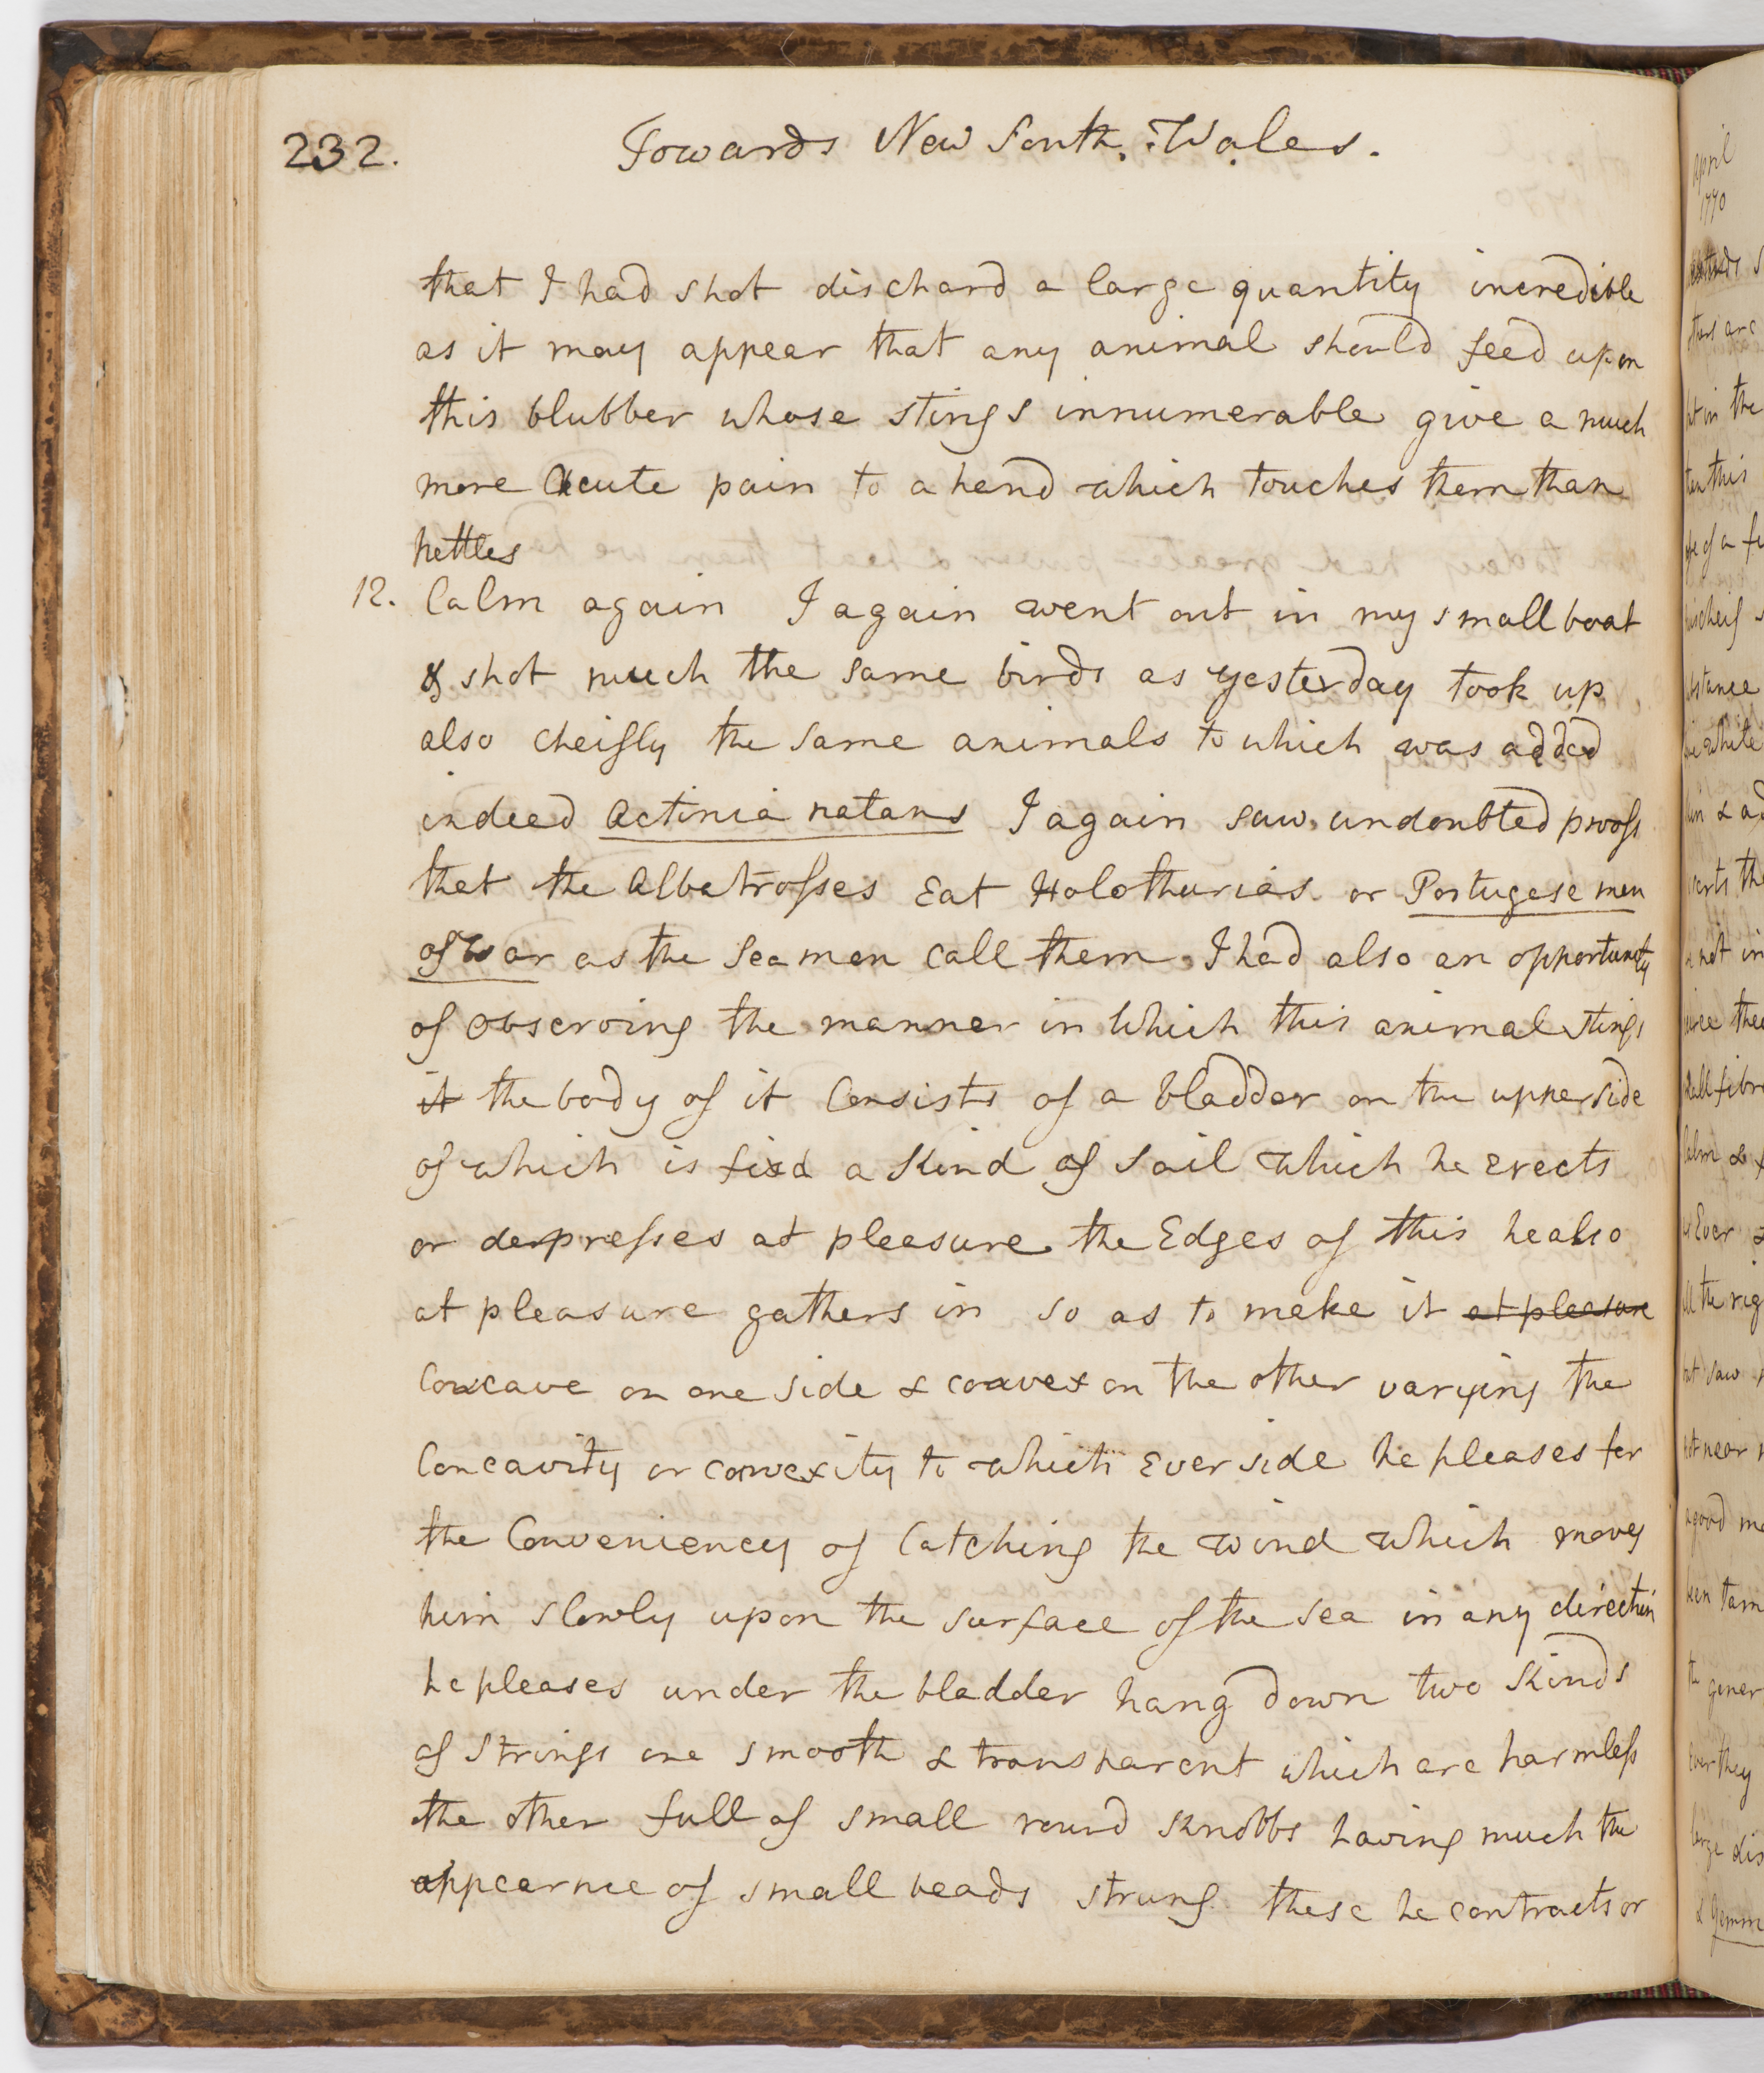 232.
Towards New South Wales.
that I had shot dischard a large quantity incredible
as it may appear that any animal should feed upon
this blubber whose stings innumerable give a much
more Acute pain to a hand which touches them than
nettles
12. Calm again I again went out in my small boat
& shot much the same birds as yesterday took up
also cheifly the same animals to which was added
indeed Actinia natans I again saw undoubted proofs
that the Albatrosses Eat Holothurias or Portugese men
of war as the Sea men call them. I had also an opportunity
of Observing the manner in Which this animal stings
it the body of it Consists of a bladder on the upper side
of which is fixd a Kind of Sail which he Erects
or depresses at pleasure the Edges of this he also
at pleasure gathers in so as to make it at pleasure
Concave on one side & convex on the other varying the
Concavity or convexity to which Ever side he pleases for
the Conveniency of Catching the wind which moves
him slowly upon the surface of the sea in any direction
he pleases under the bladder hang down two Kinds
of Strings one smooth & transparent which are harmless
the other full of small round Knobbs having much the
appearnce of small beads strung these he contracts or
April
1770